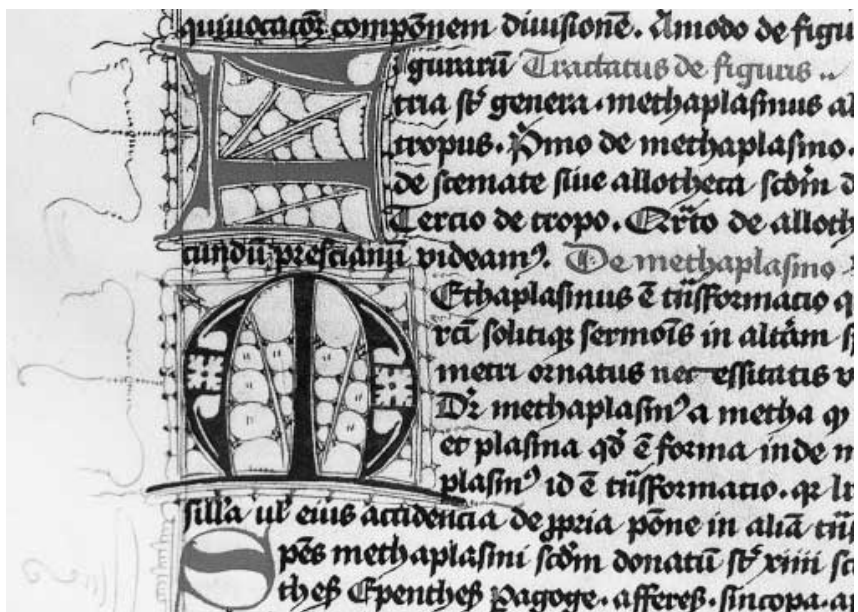 quiuocac̄oꝝ compōnem diuisionē. Amodo de figu
F igurarū Tractatus de figuris ..
tria st̄ genera · methaplasmus al
tropus. Pͥmo de methaplasmo.
de scemate siue allotheca scd̄m d
Tercio de tropo. Qr̄to de alloth
cundū prescianū videamꝰ. De methaplasmo
M Ethaplasmus ē tn̄sformacio q
rcti solitiqꝫ sermoīs in altām sp
metri ornatus necessitatis v
Dr̄ methaplasmꝰ a metha qͥ
et plasma qd̄ ē forma inde m
plasmꝰ id ē tn̄sformacio. qr̄ lr̄
silla ul̓ eius accidencia de ꝓpria pōne in aliā tn̄s
S pēs methaplasmi scd̄m donatū st̄ xiiii sc
theß Epentheß Pagoge. affereß. sincopa. ap